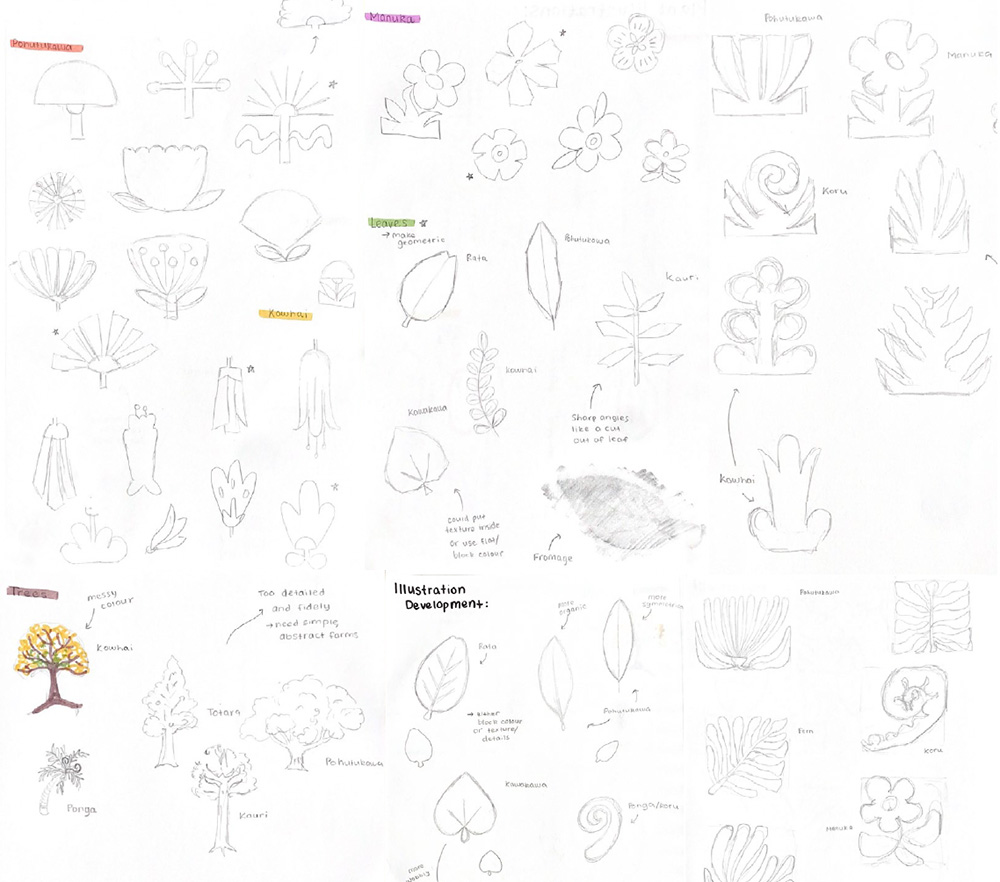 Pohutukawa
Manuka
Leaves
→ make
geometric
Rata
Pohutukawa
Kauri
Kowhai
Kawakawa
Sharp angles
like a cut
out of leaf
could put
texture inside
or use flat/
block colour
Fromage
Kowhai
Pohutukawa
Manuka
Koru
Kowhai
Trees
messy
colour
Kowhai
Too detailed
and fidely
→ need simple,
abstract forms
Totara
Pohutukawa
Ponga
Kauri
Illustration
Development:
more
organic
more
symmetrical
Rata
→ either
block colour
or texture/
details
Pohutukawa
Kawakawa
Ponga/Koru
more
Pohutukawa
Fern
Koru
Manuka